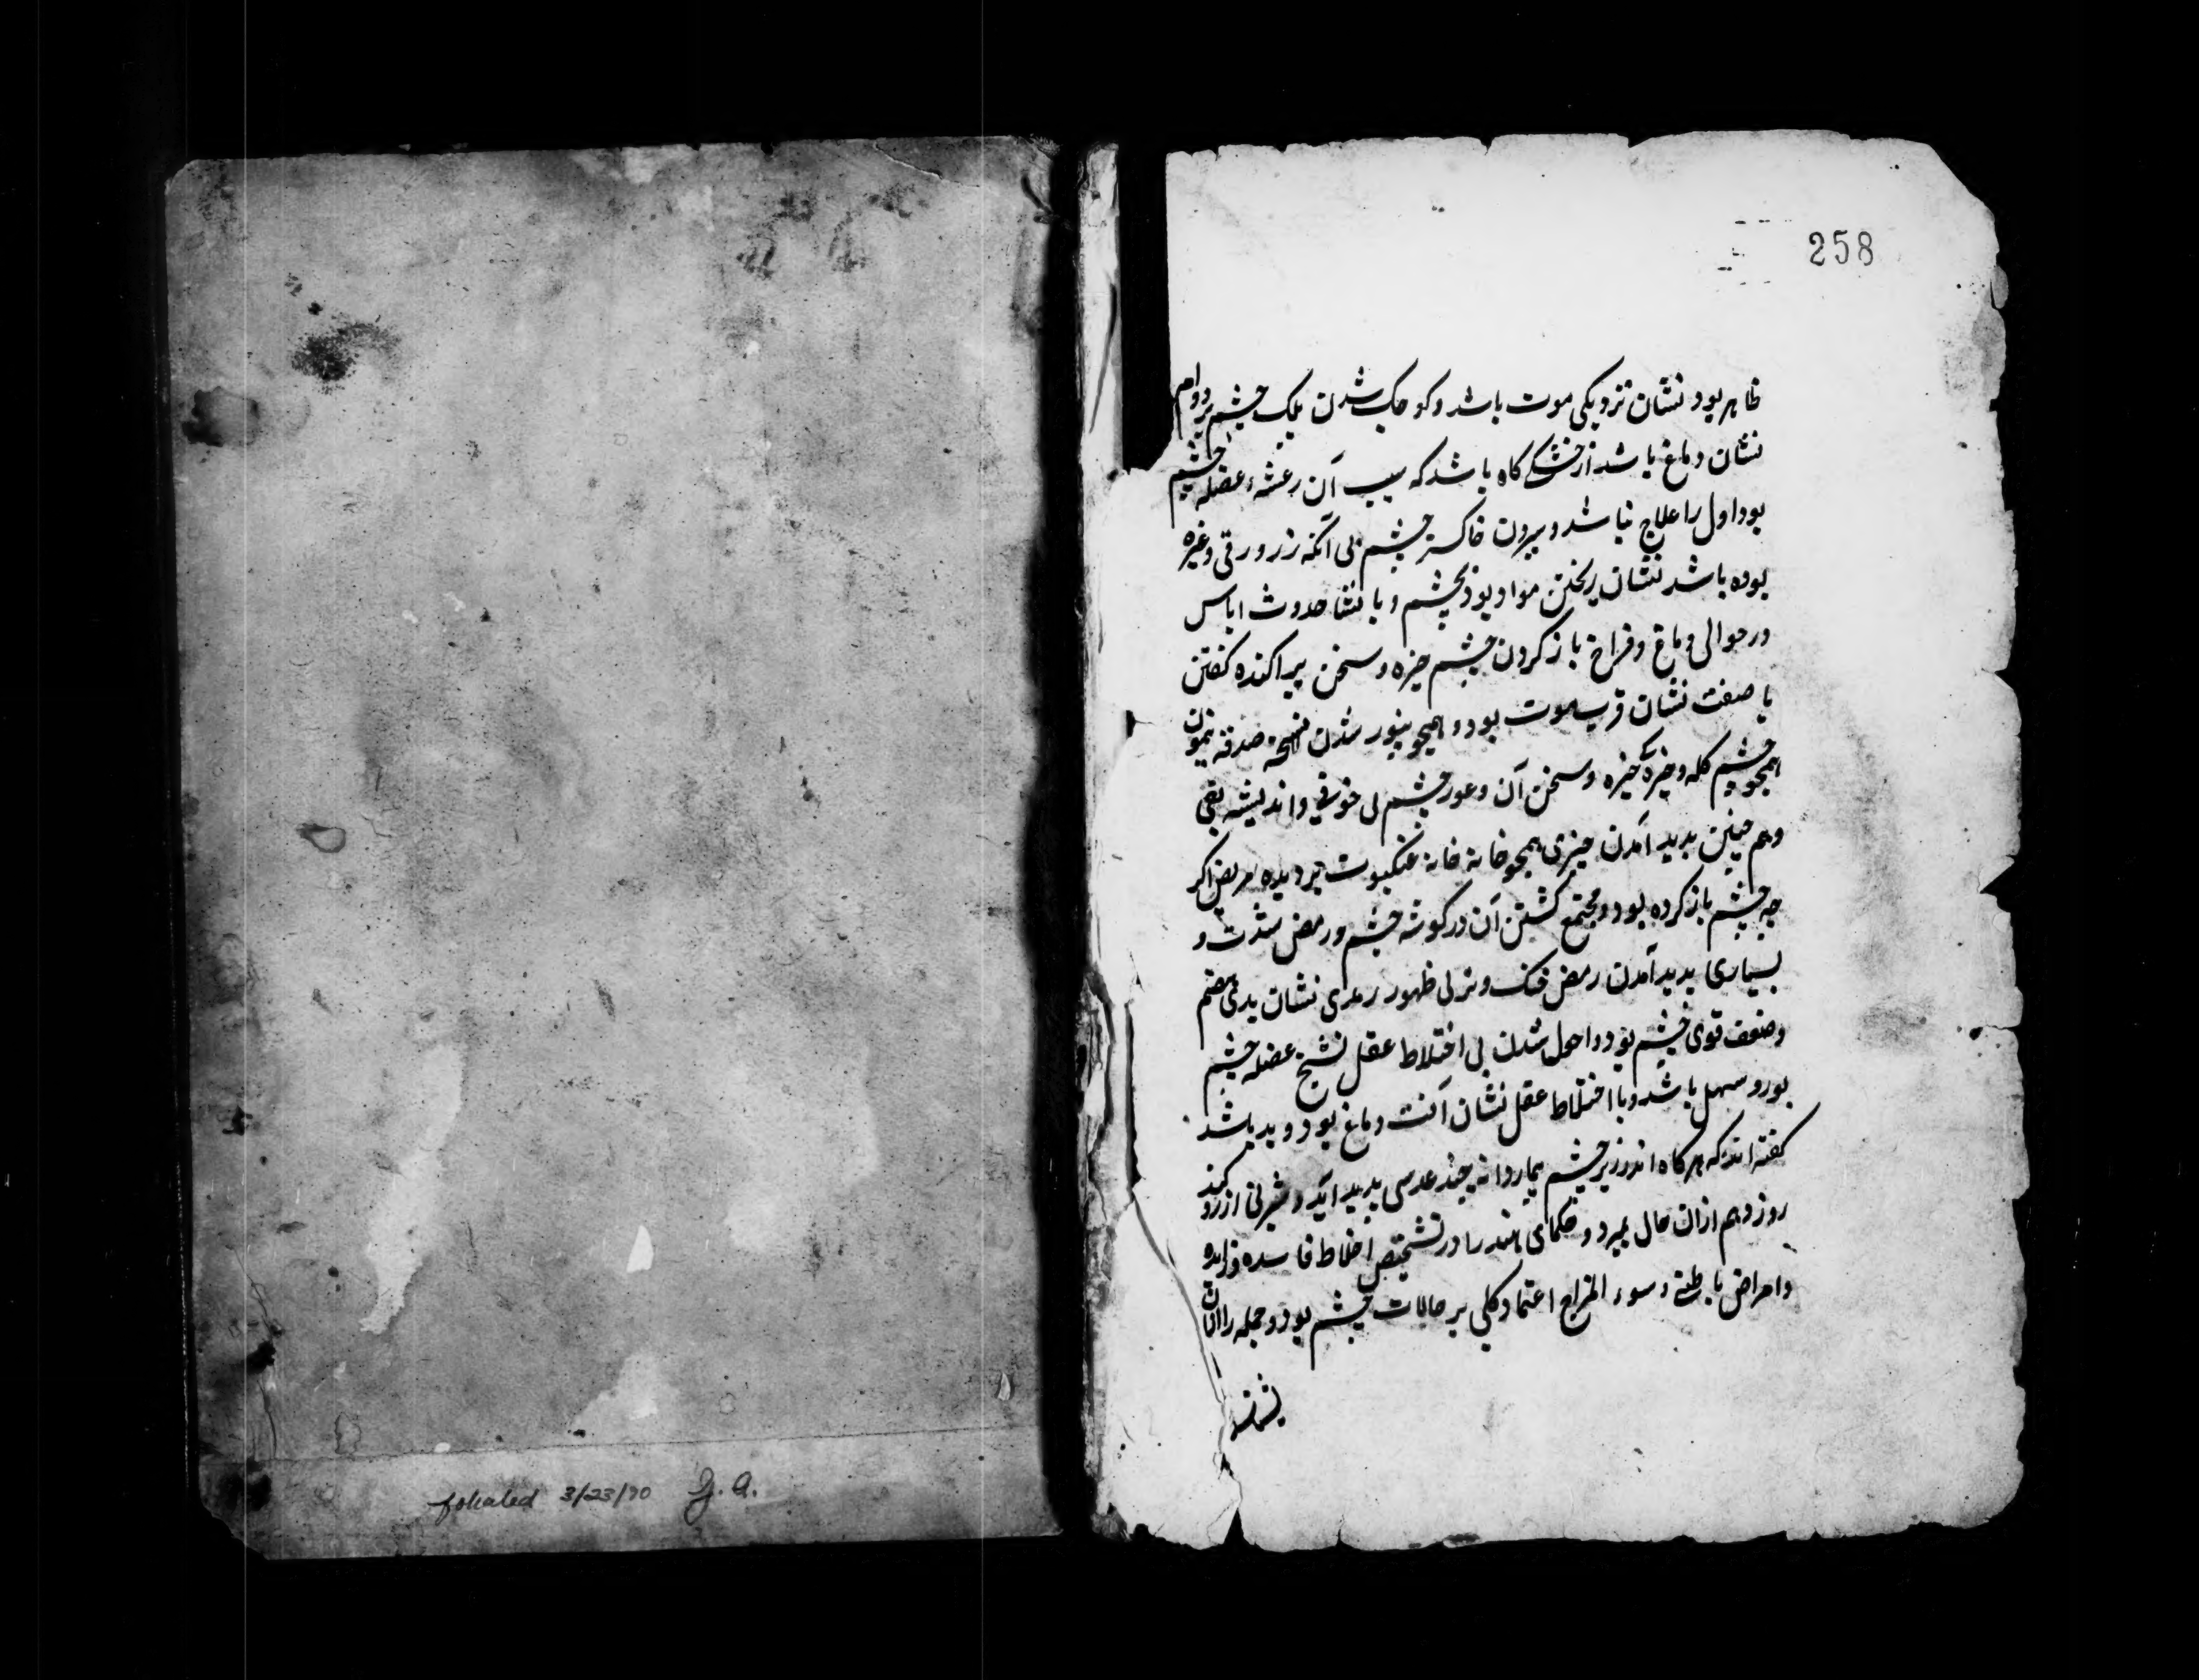 258
ظاهر بود نشان نزدیکی موت باشد و کوچک شدن یک چشم بر دوام
نشان دماغ باشد از خشکی کاه باشد که سبب آن رعشهٔ عضله چشم
بود اول را علاج نباشد و بیرون خاستن چشم بی آنکه زور و رقی و غیره
بوده باشد نشان ریختن مواد بود بچشم و یا نشا حدوث اماس
در حوالی دماغ و فراخ باز کردن چشم خیره و سخن پراکنده کفتن
با صفت نشان قرب موت بود و همچو بینور شدن صدقه نمون
همچو چشم کله و خیره خیره و سخن آن و غور چشم بی خوفی و اندیشه
و هم چنین بدید آمدن چیزی همچو خانه خانه عنکبوت بر دیده مریض اکر
چه چشم باز کرده بود و مجتمع کشتن آن در کوشه چشم و رمض شدت و
بسیاری پدید آمدن رمض خشک و تر بی ظهور رمدی نشان بدی هضم
و ضعف قوی چشم بود و احول شدن بی اختلاط عقل تشنج عضله چشم
بود و سهل باشد و با اختلاط عقل نشان آفت دماغ بود و بد باشد
کفته اند که هر کاه اندر زیر چشم بیمار دانه چند عدسی بدید آید و شیرنی ارزو کند
روز دهم ازان حال بمیرد و حکمای هند را در تشخیص اخلاط فاسده و زایده
و امراض باطنی و سوء المزاج اعتماد کلی بر حالات چشم بود و جمله را ازان
foliated 3/23/70 G. A.